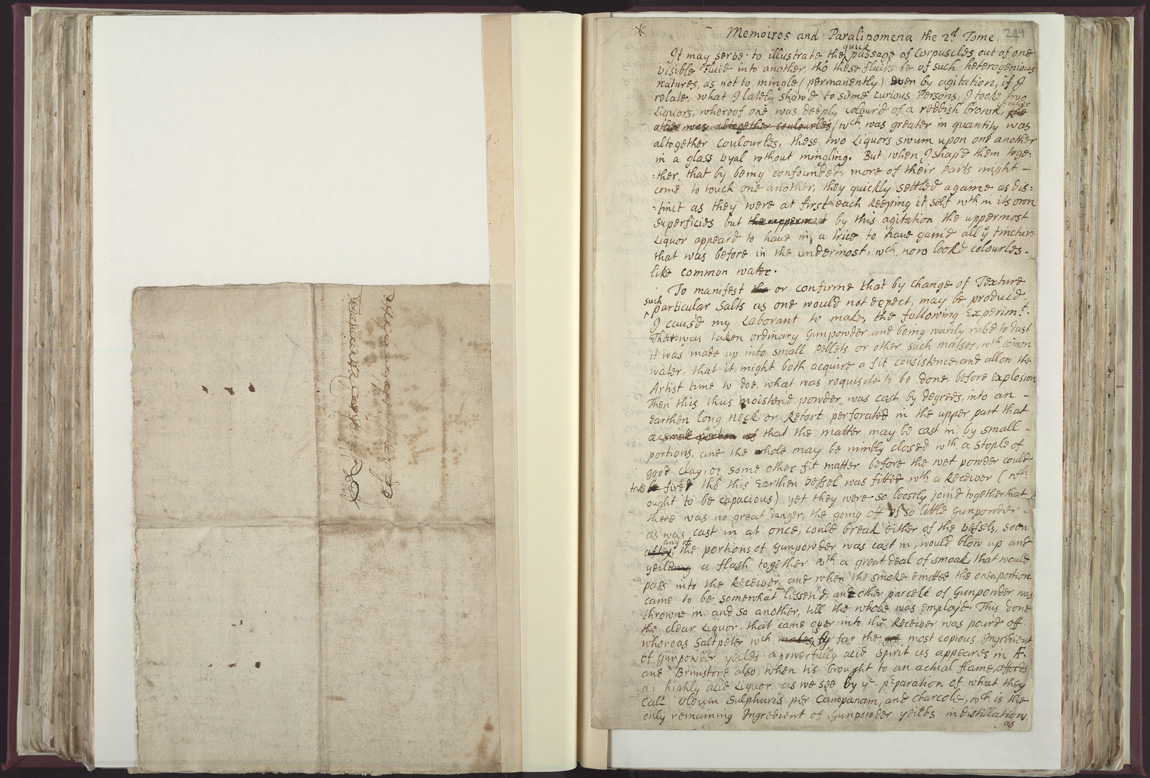 Memoires and Paralipomena the 2d Tome.
249
It may serve to illustrate the quick passage of Corpuscles out of one
visible Fluid into another, tho these fluids be of such heterogenious
natures, as not to mingle (permanently) even by agitation, if I
relate, what I lately show'd to some curious Persons. I tooke two
Liquors, whereof one was deeply colour'd of a reddish brown,
other was altogether coulourles (wch was greater in quantity was
altogether coulourles, these two Liquors swum upon one another
in a glass vyal without mingling. But when I shak'd them toge-
ther, that by being confounded more of their parts might
come to touch one another, they quickly settled againe as dis-
tinct as they were at first each keeping it self wth in its own
superficies but the uppermost by this agitation the uppermost
Liquor appear'd to have in a trice to have gain'd all ye tincture
that was before in the undermost, wch now look'd colourles
like common water.
To manifest or confirme that by change of Texture
such particular Salts as one would not expect, may be produc'd
I caus'd my Laborant to make, the following Experimt.
That was taken ordinary Gunpowder, and being warily rub'd to dust
it was made up into small pellets or other such masses, wth comon
water, that it might both acquire a fit consistence and allow the
Artist time to doe, what was requisite to be done, before explosion
Then this thus moisten'd powder, was cast by degrees, into an
earthen long neck or Retort perforated in the upper part that
a small portion of that the matter may be cast in by small
portions, and the whole may be nimbly closed wth a stople of
good clay, or some other fit matter before the wet powder could
take fire. tho this Earthen vessel was fitted wth a Receiver (wch
ought to be capacious) yet they were so loosly join'd together that
there was no great danger, the going of of so little Gunpowder
as was cast in at once, could break either of the vessels, soon
after any of the portions of Gunpowder was cast in, would blow up and
yeilding a flash together wth a great deal of smoak, that would
pass into the Receiver, and when the smoke emitted the one portion
came to be somewhat lessen'd, another parcell of Gunpowder was
throwne in and so another, till the whole was employ'd. This done
the clear Liquor, that came over into the Receiver was pour'd off
whereas Saltpeter wch makes by far the most copious Ingredient
of Gunpowder yeilds a powerfully acid spirit as appeares in A.F.
and Brimstone also, when tis brought to an actual flame, affords
a highly acid Liquor, as we see by ye preparation of what they
call Oleum Sulphuris per Campanam, and charcole, wch is the
only remaining Ingredient of Gunpowder yeilds in Distillation
as